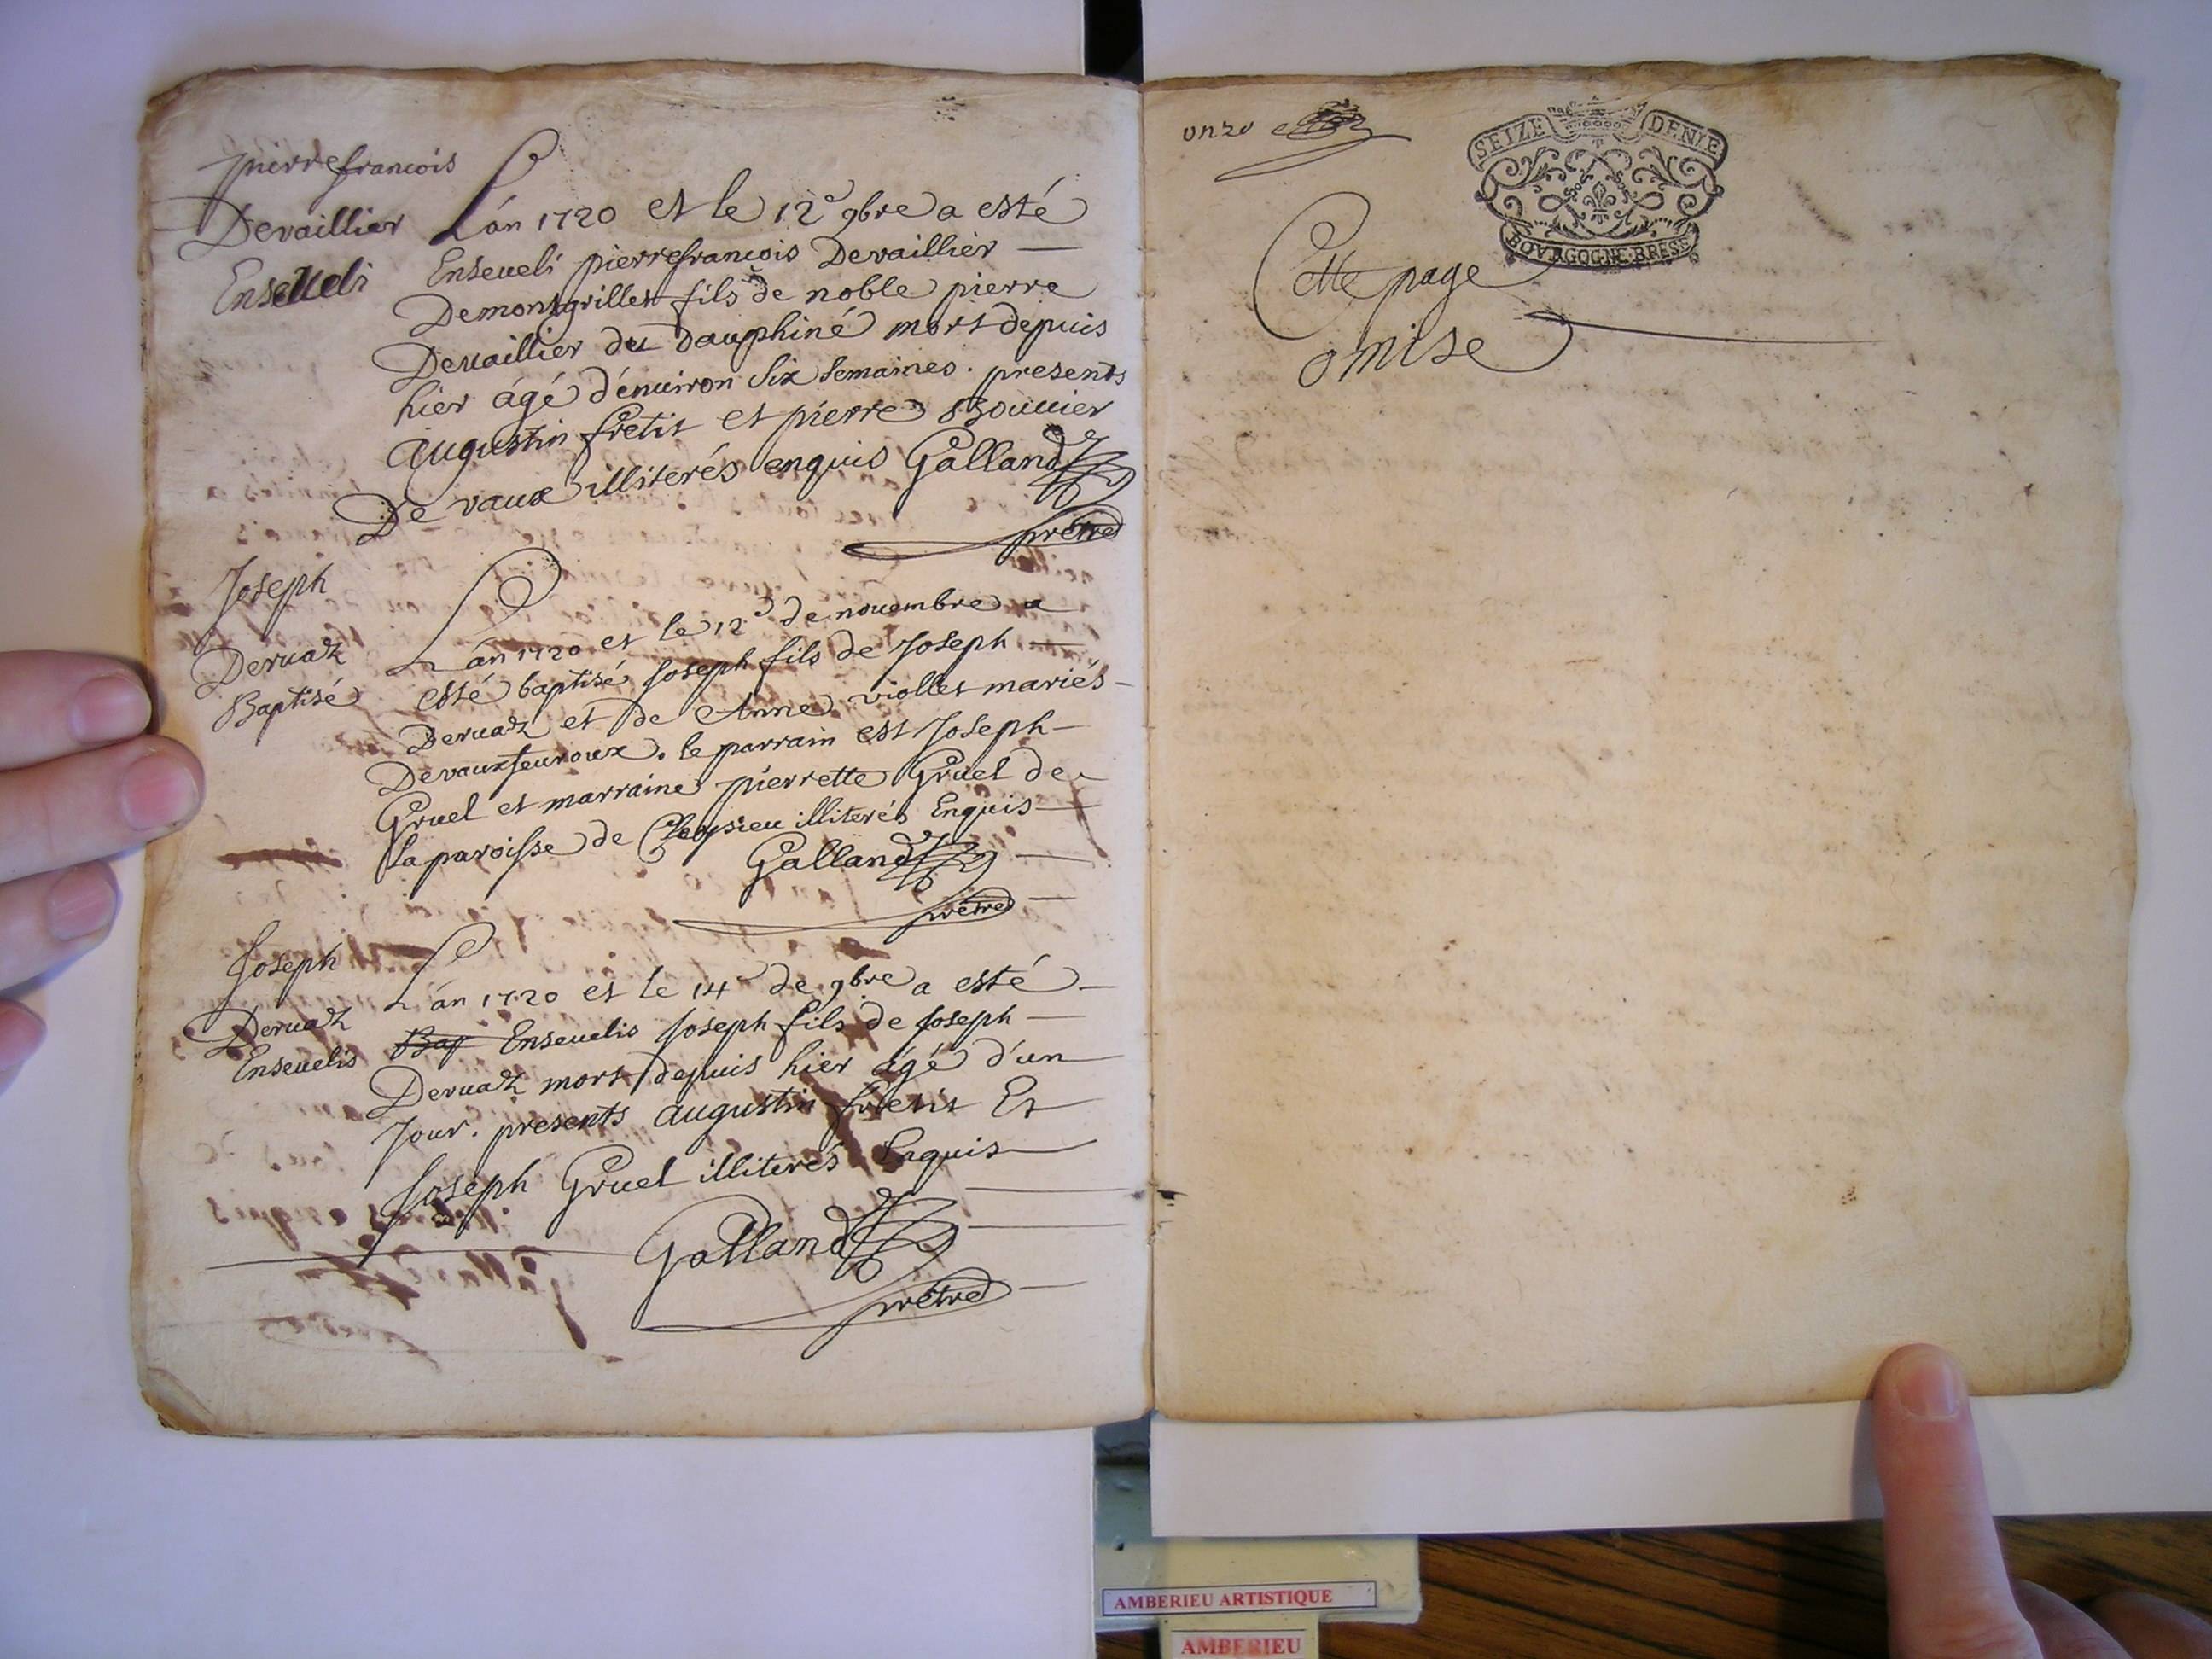 pierrefrancois
Devaillier
Enseueli
L'an 1720 et le 12e 9bre a esté
Enseueli pierrefrancois Devaillier
Demontgrillet fils de noble pierre
Devaillier du Dauphiné mort depuis
hier ágé d'enuiron six semaines. presents
augustin fretit et pierre Bouuier
De vaux illiterés enquis Galland
prêtre
Joseph
Deruaz
Baptisé
L'an 1720 et le 12e de nouembre a
esté baptisé Joseph fils de Joseph
Deruaz et de Anne viollet mariés
Devauxfeuroux. le parrain est Joseph
Gruel et marraine pierrette Gruel de
la paroisse de Cleysieu illiterés Enquis
Galland
prêtre
Joseph
Deruaz
Enseuelis
L'an 1720 et le 14e de 9bre a esté
Bap Enseuelis Joseph fils de Joseph
Deruaz mort depuis hier ágé d'un
Jour. presents augustin fretit Et
Joseph Gruel illiterés Enquis
Galland
prêtre
onze
SEIZE DENIE
BOVRGOGNE·BRESE
Cette page
omise
AMBERIEU ARTISTIQUE
AMBERIEU